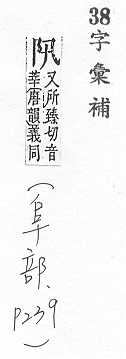 38字彙補
阠
又所臻切音
莘唐韻義同
(阜部、p239)